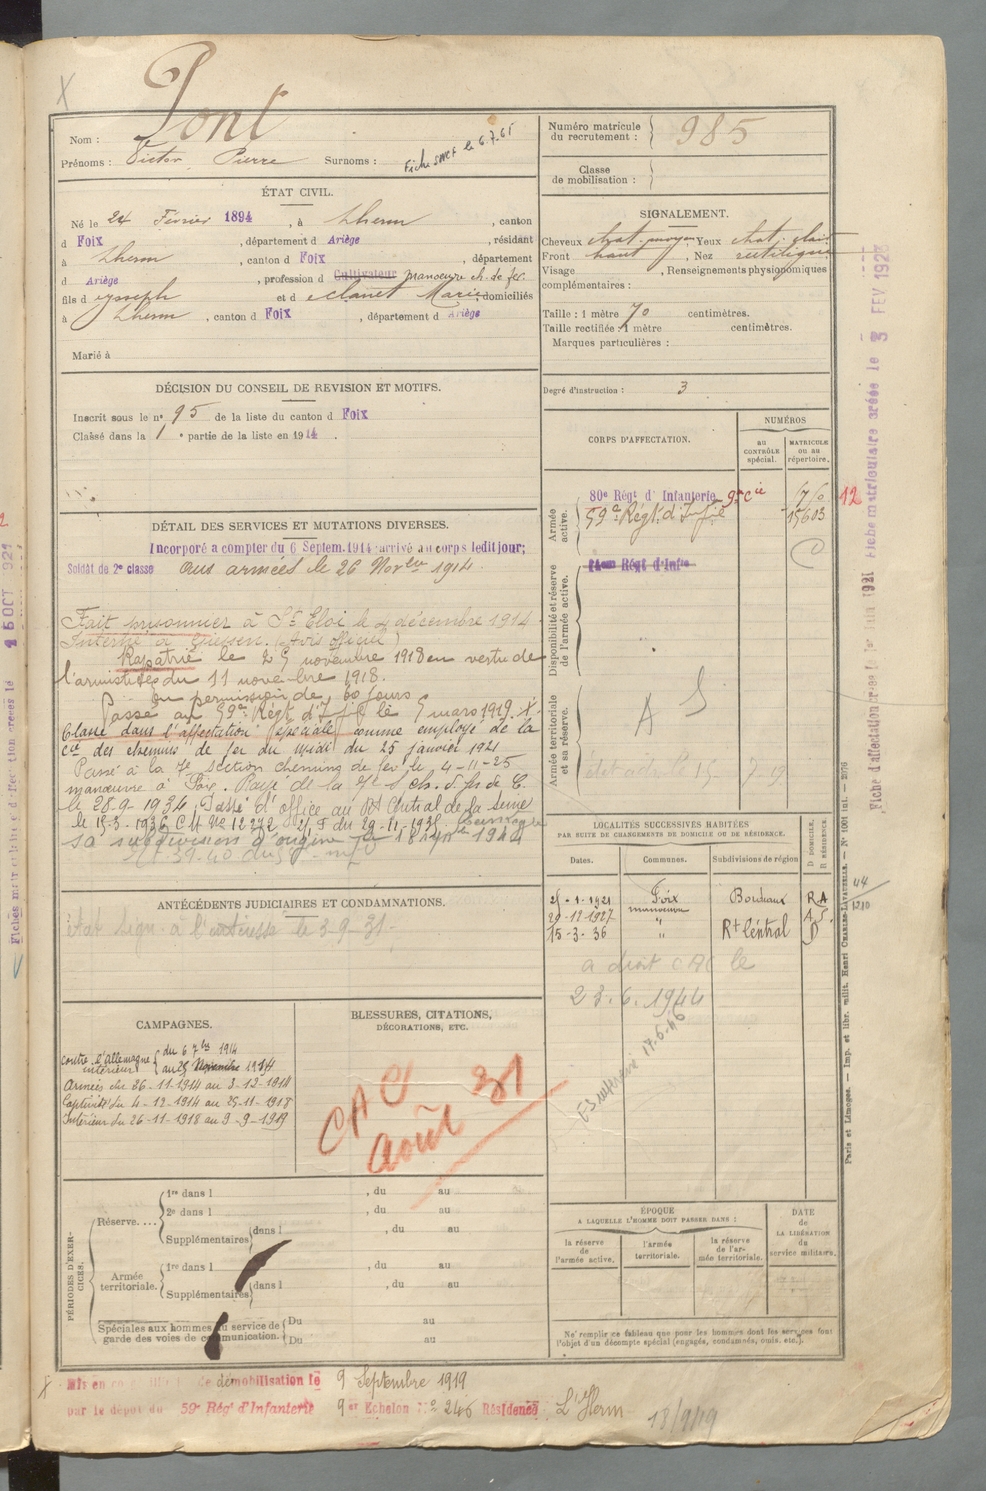 Pont
Nom :
Prénoms : Victor Pierre Surnoms :
Fiche le 6.7.61
Numéro matricule
du recrutement : 985
Classe
de mobilisation :
ÉTAT CIVIL.
Né le 24 Février 1894, à Lherm, canton
d Foix, département d Ariège, résidant
à Lherm, canton d Foix, département
d Ariège, profession d Cultivateur manoeuvre ch. de fer
fils d Joseph et d Clanet Marie, domiciliés
à Lherm, canton d Foix, département d Ariège
Marié à
SIGNALEMENT.
Cheveux chat. moyen Yeux chat. clair
Front haut Nez rectiligne
Visage , Renseignements physionomiques
complémentaires :
Taille : 1 mètre 70 centimètres.
Taille rectifiée : 1 mètre centimètres.
Marques particulières :
Degré d'instruction : 3
DÉCISION DU CONSEIL DE REVISION ET MOTIFS.
Inscrit sous le n° 95 de la liste du canton d Foix
Classé dans la 1re partie de la liste en 1914.
DÉTAIL DES SERVICES ET MUTATIONS DIVERSES.
Incorporé a compter du 6 Septem. 1914 arrivé au corps ledit jour;
Soldat de 2e classe aux armées le 26 Novbre 1914.
Fait prisonnier à St Eloi le 4 décembre 1914
Interné à Giessen. (Avis officiel)
Rapatrié le 25 novembre 1918 en vertu de
l'armistice du 11 novembre 1918.
En permission de 60 jours
Passé au 59e Régt d'Infie le 5 mars 1919. X.
Classé dans l'affectation spéciale comme employé de la
Cie des chemins de fer du midi du 25 janvier 1921
Passé à la 7e section chemins de fer le 4-11-25
manœuvre à Foix. Rayé de la 7e S ch. d. f. de C.
le 28-9-1934. Passé d'office au Rt Central de la Seine
le 15-3-1936 CM No 12272 du 29-11-1935
sa subdivision d'origine 1944
CORPS D'AFFECTATION.
NUMÉROS
au
CONTRÔLE
spécial.
MATRICULE
ou au
répertoire.
Armée
active.
80e Régt d'Infanterie 9e Cie
12
59e Régt d'Infie 15603
Disponibilité et réserve
de l'armée active.
Régt d'Infie
Armée territoriale
et sa réserve.
A S
LOCALITÉS SUCCESSIVES HABITÉES
PAR SUITE DE CHANGEMENTS DE DOMICILE OU DE RÉSIDENCE.
Dates. Communes. Subdivisions de région D DOMICILE. R RÉSIDENCE.
25-1-1921 Foix Bordeaux R A
29-12-1927 manœuvre " A S
15-3-36 " Rt Central D
a droit CAC le
23.6.1944
17-6-46
ANTÉCÉDENTS JUDICIAIRES ET CONDAMNATIONS.
Etat sign. à l'intéressé le 3-9-31
CAMPAGNES.
Contre l'Allemagne
intérieur du 6 7bre 1914
au 25 Novembre 1914
Armées du 26-11-1914 au 3-12-1914
Captivité du 4-12-1914 au 25-11-1918
Intérieur du 26-11-1918 au 9-9-1919
BLESSURES, CITATIONS,
DÉCORATIONS, ETC.
CAC 31
Août
PÉRIODES D'EXERCICES.
Réserve.... 1re dans l , du au
2e dans l , du au
Supplémentaires dans l , du au
Armée
territoriale. 1re dans l , du au
Supplémentaires dans l , du au
Spéciales aux hommes du service de
garde des voies de communication. Du au
Du au
ÉPOQUE
A LAQUELLE L'HOMME DOIT PASSER DANS :
la réserve
de
l'armée active.
l'armée
territoriale.
la réserve
de l'armée territoriale.
DATE
de
LA LIBÉRATION
du
service militaire.
Ne remplir ce tableau que pour les hommes dont les services font
l'objet d'un décompte spécial (engagés, condamnés, omis, etc.).
Mis en congé illimité de démobilisation le 9 Septembre 1919
par le dépôt du 59e Régt d'Infanterie 9er Echelon No 246 Résidence L'Herm
18/9/19
Fiche matriculaire créée le 3 FEV 1928
Fiche d'affectation créée le 1921
Fiches matriculaire et d'affection créées le 15 OCT 1921
44/1210
Paris et Limoges. — Imp. et libr. milit. Henri CHARLES-LAVAUZELLE. — N° 1001 int. — 2076